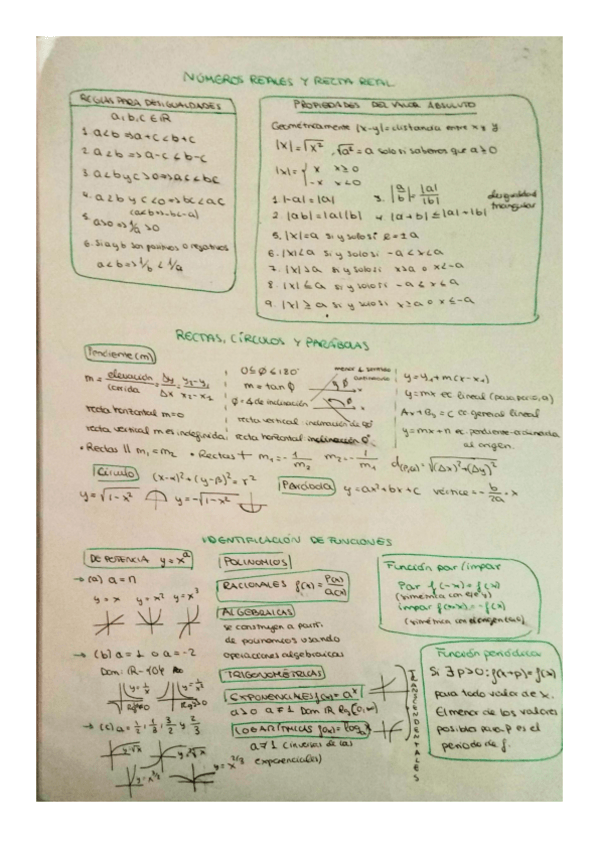 NÚMEROS REALES Y RECTA REAL
REGLAS PARA DESIGUALDADES
a,b,c ∈ ℝ
1. a<b ⇒ a+c<b+c
2. a<b ⇒ a-c<b-c
3. a<b y c>0 ⇒ ac<bc
4. a<b y c<0 ⇒ bc<ac
(a<b ⇒ -b<-a)
5. a>0 ⇒ 1/a >0
6. Si a y b son positivos o negativos
a<b ⇒ 1/b < 1/a
PROPIEDADES DEL VALOR ABSOLUTO
Geométricamente |x-y| = distancia entre x y y
|x| = √x² , √a² = a solo si sabemos que a≥0
|x| = { x x≥0
-x x<0
1. |-a| = |a|
3. |a/b| = |a|/|b|
2. |ab| = |a||b|
4. |a+b| ≤ |a|+|b|
desigualdad triangular
5. |x|=a si y solo si x=±a
6. |x|<a si y solo si -a<x<a
7. |x|>a si y solo si x>a o x<-a
8. |x|≤a si y solo si -a≤x≤a
9. |x|≥a si y solo si x≥a o x≤-a
RECTAS, CÍRCULOS Y PARÁBOLAS
Pendiente (m)
m = elevación/corrida = Δy/Δx = y₂-y₁/x₂-x₁
recta horizontal m=0
recta vertical m es indefinida
0≤Ø<180°
m = tan Ø
Ø = de inclinación
recta vertical inclinación de 90°
recta horizontal inclinación 0°
y = y₁+m(x-x₁)
y = mx ec lineal (pasa por 0,0)
Ax+By=C ec general lineal
y = mx+n ec. pendiente-ordenada
al origen.
• Rectas || m₁=m₂ • Rectas + m₁ = -1/m₂ m₂ = -1/m₁
d(P,Q) = √(Δx)²+(Δy)²
Círculo
(x-α)²+(y-β)²=r²
y = √1-x² y = -√1-x²
Parábola
y = ax²+bx+c vértice = -b/2a = x
IDENTIFICACIÓN DE FUNCIONES
DE POTENCIA y = xᵃ
→ (a) a = n
y = x y = x² y = x³
→ (b) a = -1 o a = -2
Dom: ℝ-{0}
y = 1/x y = 1/x²
→ (c) a = 1/2, 1/3, 3/2 y 2/3
y = √x y = ∛x
y = x^3/2 y = x^2/3
POLINOMIOS
RACIONALES f(x) = P(x)/Q(x)
ALGEBRAICAS
se construyen a partir
de polinomios usando
operaciones algebraicas
TRIGONOMÉTRICAS
EXPONENCIALES f(x) = aˣ
a>0 a≠1 Dom ℝ Rg (0,∞)
LOGARÍTMICAS f(x) = logₐx
a≠1 (inversas de las
exponenciales)
TRANSCENDENTALES
Función par/impar
Par f(-x) = f(x)
(simétrica con eje y)
impar f(-x) = -f(x)
(simétrica con el origen)
Función periódica
Si ∃ p>0 : f(x+p) = f(x)
para todo valor de x.
El menor de los valores
posibles para p es el
periodo de f.